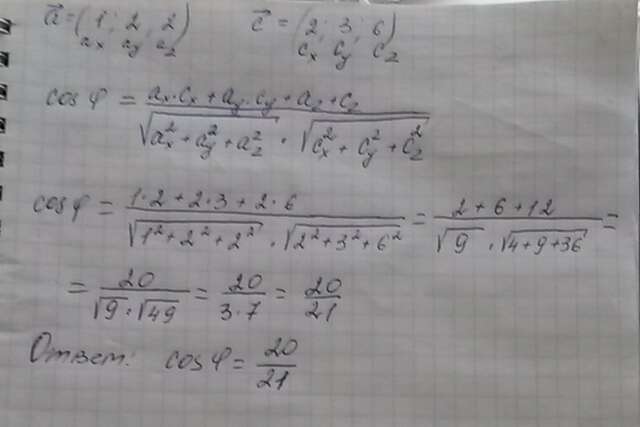 ā = (1; 2; 2)   c̄ = (2; 3; 6)
ax ay az   cx cy cz
cos φ = (ax·cx + ay·cy + az+cz) / (√(ax² + ay² + az²) · √(cx² + cy² + cz²))
cos φ = (1·2 + 2·3 + 2·6) / (√(1² + 2² + 2²) · √(2² + 3² + 6²)) = (2 + 6 + 12) / (√9 · √(4+9+36)) =
= 20 / (√9 · √49) = 20 / (3·7) = 20/21
Ответ: cos φ = 20/21